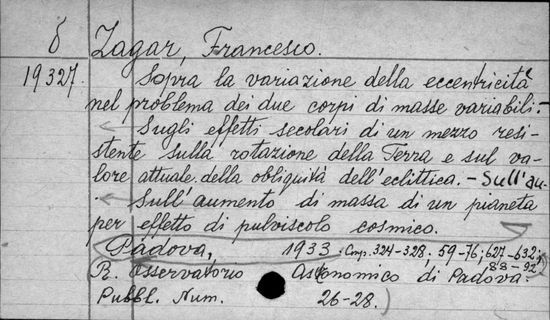 δ Zagar, Francesco.
19327. Sopra la variazione della eccentricità
nel problema dei due corpi di masse variabili. -
Sugli effetti secolari di un mezzo resi-
stente sulla rotazione della Terra e sul va-
lore attuale della obliquità dell'eclittica. - Sull'au.
Sull'aumento di massa di un pianeta
per effetto di pulviscolo cosmico.
Padova, 1933. pp. 324-328; 59-76; 627-632;
88-92.
(R. Osservatorio Astronomico di Padova.
Pubbl. Num. 26-28.)